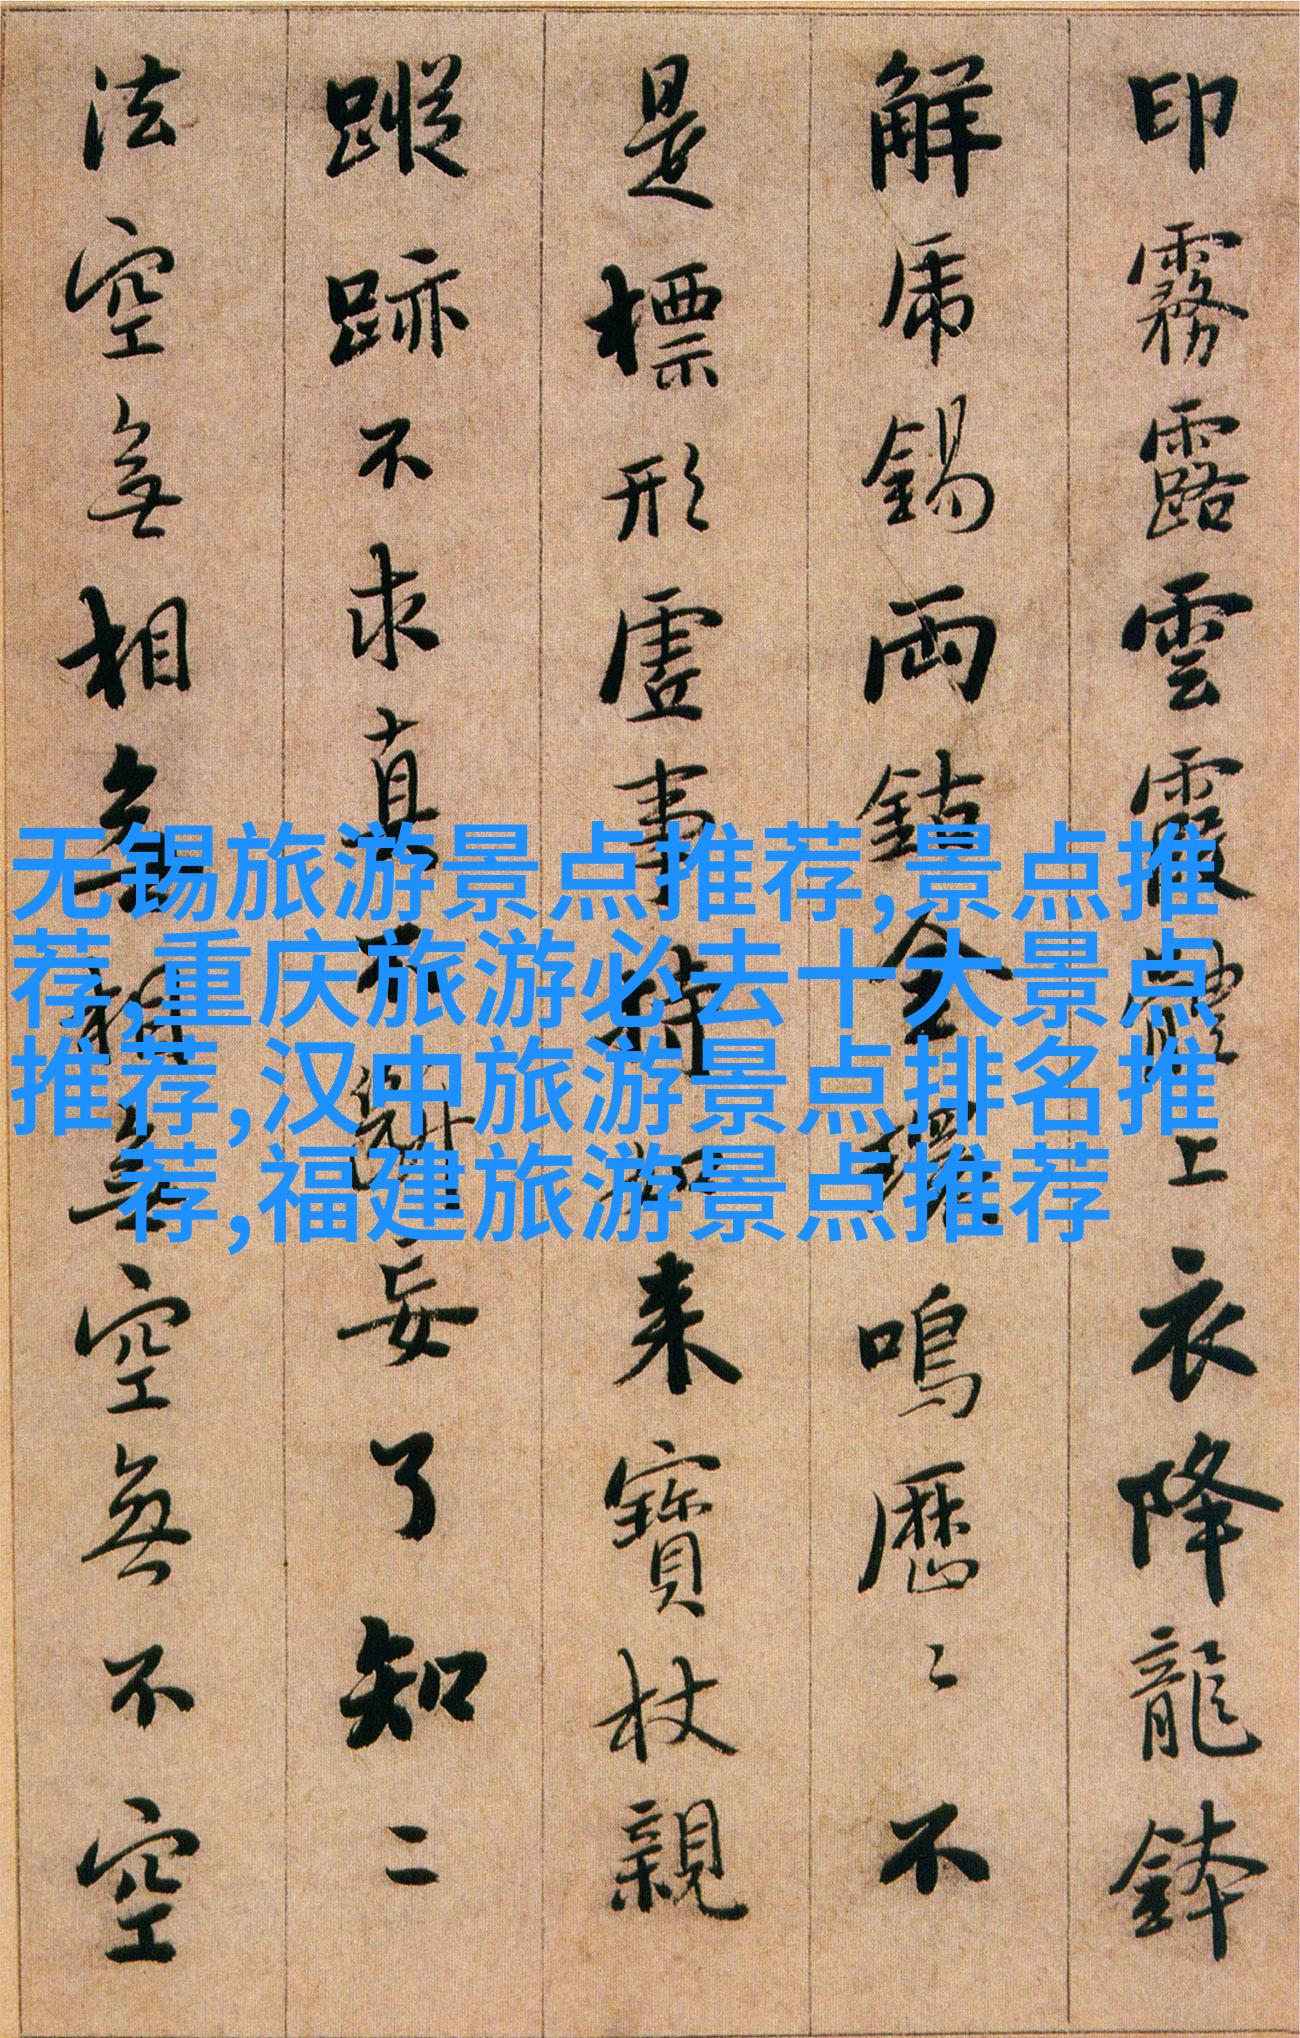 印霧露雲霞體上衣降龍鉢
解虎錫兩鈷金鐶鳴歷〻不
是標形虛事持如來寶杖親
蹤跡不求真不斷妄了知二
法空無相無相無空無不空
无锡旅游景点推荐,景点推
荐,重庆旅游必去十大景点
推荐,汉中旅游景点排名推
荐,福建旅游景点推荐